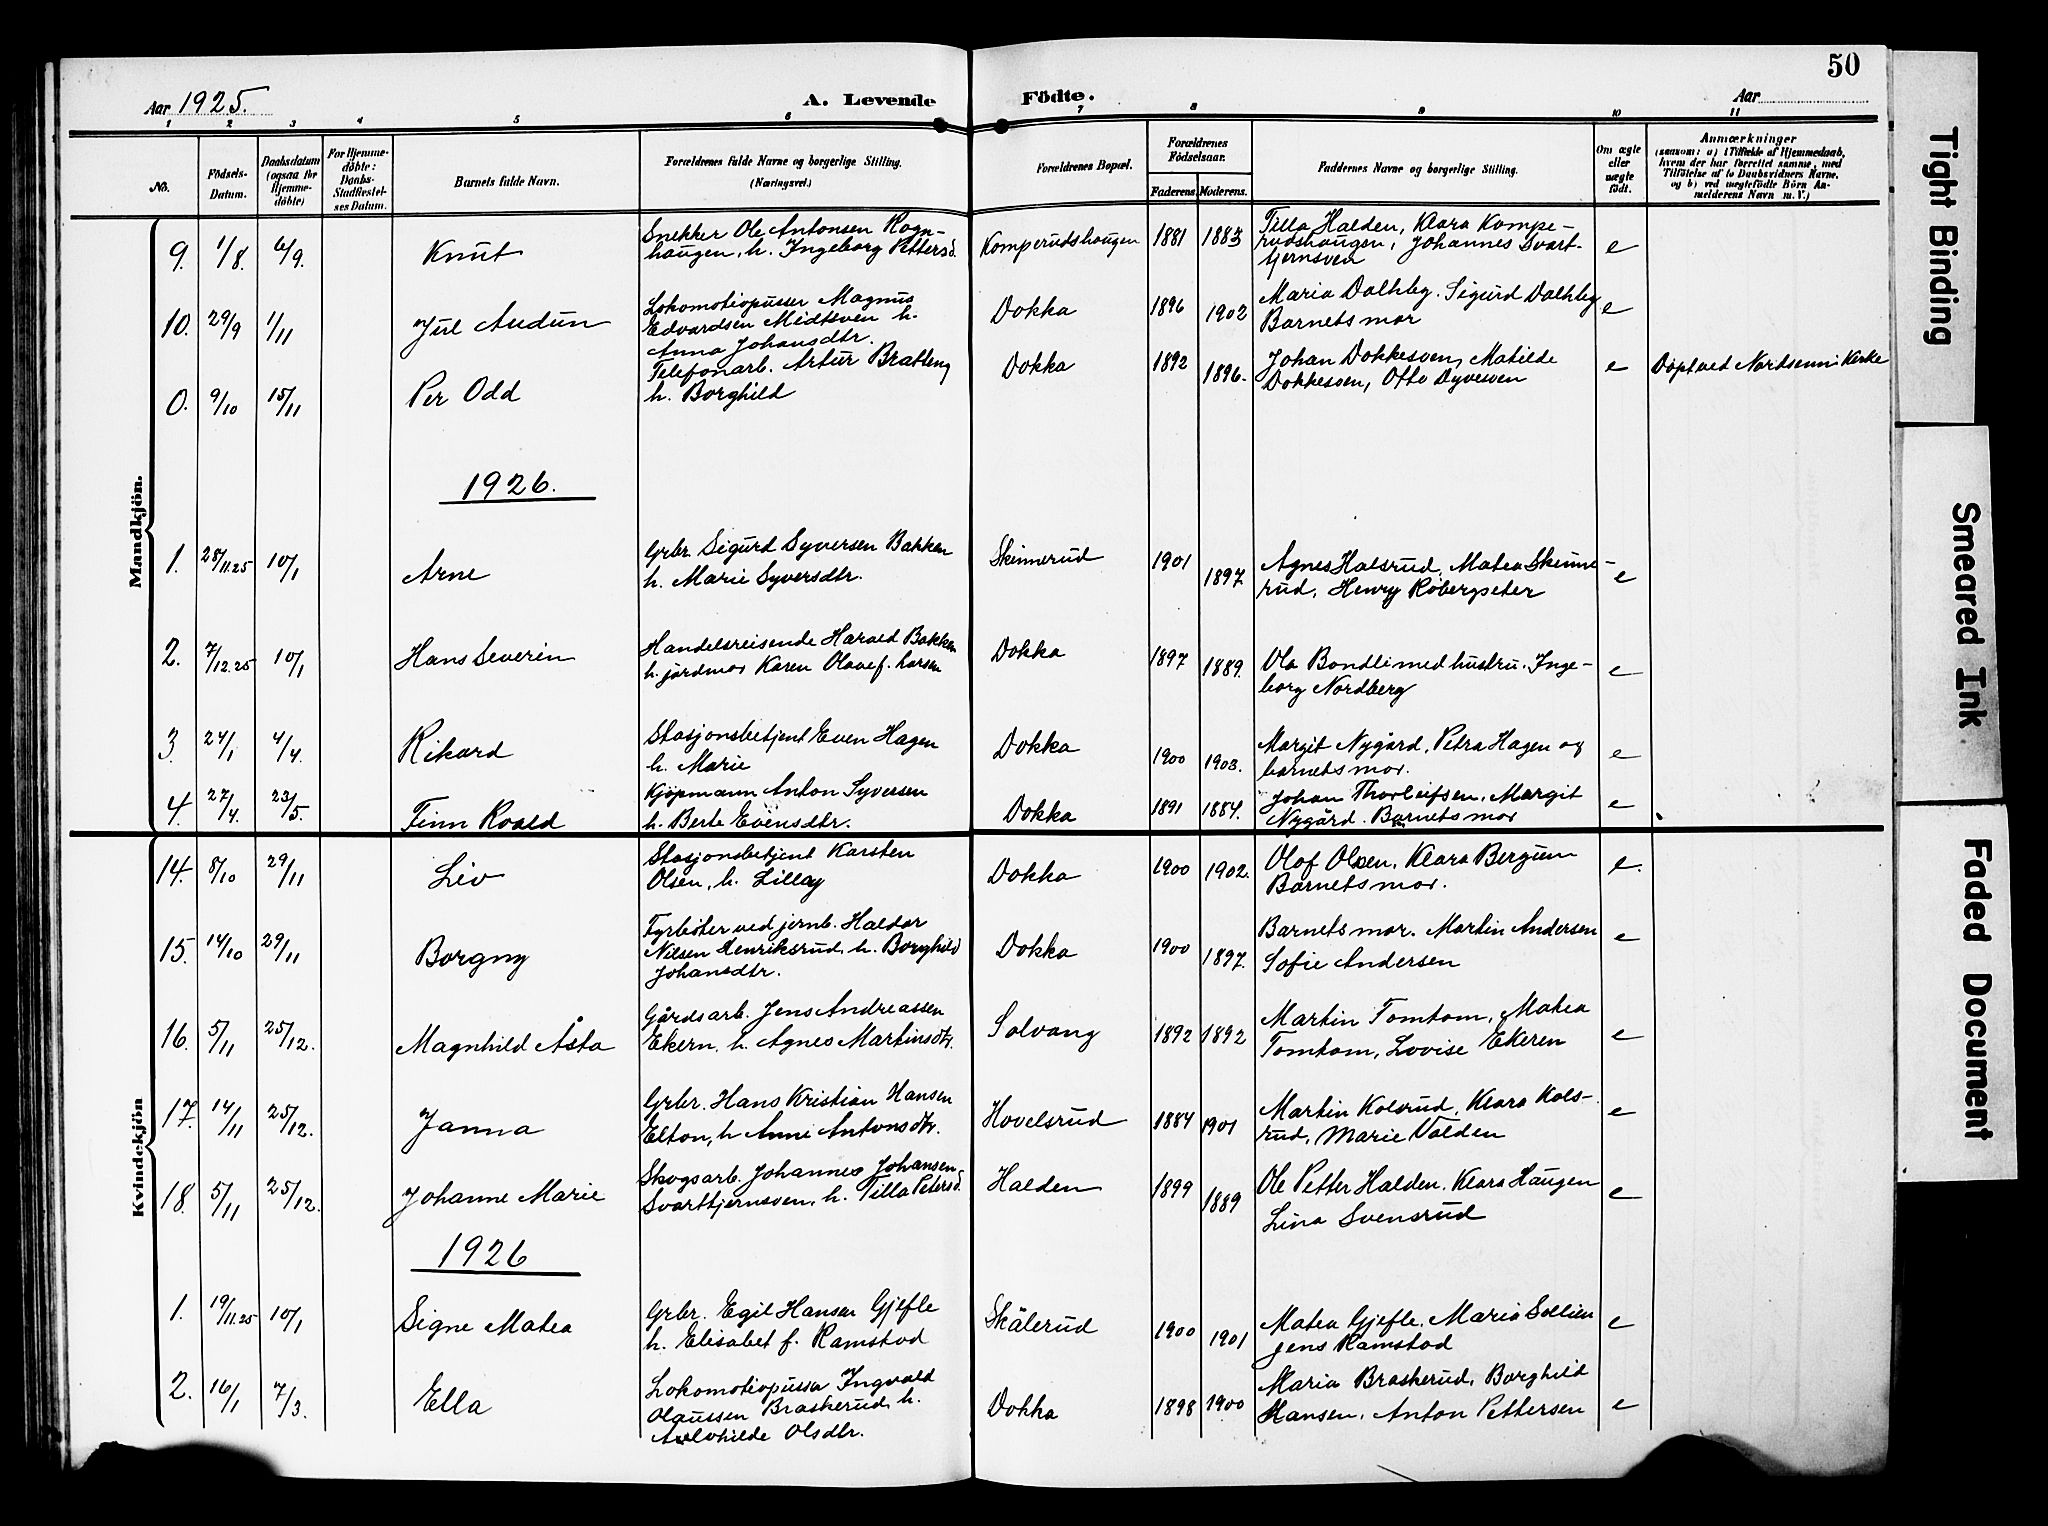 50
Aar 1925.
A. Levende Födte.
Aar
1 2 3 4 5 6 7 8 9 10 11
No.
Födsels-
Datum.
Daabsdatum
(ogsaa for
Hjemme-
döbte)
For Hjemme-
döbte:
Daabs-
Stadfæstel-
ses Datum.
Barnets fulde Navn.
Forældrenes fulde Navne og borgerlige Stilling.
(Næringsvei.)
Forældrenes Bopæl.
Forældrenes
Födselsaar.
Faderens. Moderens.
Faddernes Navne og borgerlige Stilling.
Om ægte
eller
uægte
födt.
Anmærkninger
(saasom: a) i Tilfælde af Hjemmedaab,
hvem der har forrettet samme, med
Tilföielse af to Daabsvidners Navne,
og b) ved uægtefödte Börn An-
melderens Navn m. V.)
Mandkjön.
9. 1/8. 6/9. Knut
Snekker Ole Antonsen Rogn-
haugen, h. Ingeborg Pettersd.
Komperudshaugen 1881 1883
Tilla Halden, Klara Kompe-
rudshaugen, Johannes Svart-
tjernsven
e
10. 29/9 1/11 Jul Audun
Lokomotivpusser Magnus
Edvardsen Midtsven h.
Anna Johansdtr.
Dokka 1896 1902
Maria Dalhby. Sigurd Dalhby
Barnets mor
e
0. 9/10 15/11 Per Odd
Telefonarb. Artur Bratteng
h. Borghild
Dokka 1892 1896.
Johan Dokkesven, Matilde
Dokkesven, Otto Dyvesven
e Döpt ved Nordsinni Kirke
1926.
1. 28/11.25 10/1 Arne
Grbr. Sigurd Syversen Bakken
h. Marie Syversdtr.
Skinnerud 1901 1897
Agnes Halsrud, Matea Skinne-
rud, Henry Robergseter
e
2. 7/12.25 10/1 Hans Severin
Handelsreisende Harald Bakken
h. jordmor Karen Olava f. Larsen
Dokka 1897 1889.
Ola Bondli med hustru. Inge-
borg Nordberg
e
3. 24/1 4/4. Rikard
Stasjonsbetjent Even Hagen
h. Marie
Dokka 1900 1903.
Margit Nygård, Petra Hagen og
barnets mor.
e
4. 27/4. 23/5. Finn Roald
Kjöpmann Anton Syversen
h. Berte Evensdtr.
Dokka 1891 1884.
Johan Thorleifsen, Margit
Nygård. Barnets mor
e
Kvindekjön
14. 8/10 29/11 Liv
Stasjonsbetjent Karsten
Olsen, h. Lillay
Dokka 1900 1902.
Olaf Olsen, Klara Bergum
Barnets mor.
e.
15. 14/10 29/11 Borgny
Fyrböter ved jernb. Haldor
Nilsen Henriksrud, h. Borghild
Johansdtr.
Dokka 1900 1897.
Barnets mor. Martin Andersen
Sofie Andersen
e
16. 5/11 25/12. Magnhild Åsta
Gårdsarb. Jens Andreassen
Ekern, h. Agnes Martinsdtr.
Solvang 1892 1892
Martin Tomtom, Matea
Tomtom, Lovise Ekeren
e
17. 14/11 25/12. Janna
Grbr. Hans Kristian Hansen
Elton, h Anne Antonsdtr.
Hovelsrud 1884 1901
Martin Kolsrud, Klara Kols-
rud, Marie Volden
e
18. 5/11 25/12. Johanne Marie
Skogsarb. Johannes Johansen
Svarttjernsven, h. Tilla Petersd.
Halden 1899 1889
Ole Petter Halden. Klara Haugen
Lina Svensrud
e
1926
1. 19/11.25 10/1 Signe Matea
Grbr. Egil Hansen Gjefle
h. Elisabet f. Ramstad
Skålerud 1900 1901
Matea Gjefle. Maria Sollien
Jens Ramstad
e
2. 16/1 7/3. Ella
Lokomotivpusser Ingvald
Olaussen Braskerud, h.
Olsdtr.
Dokka 1898 1900
Maria Braskerud, Borghild
Hansen, Anton Pettersen
e
Tight Binding
Smeared Ink
Faded Document